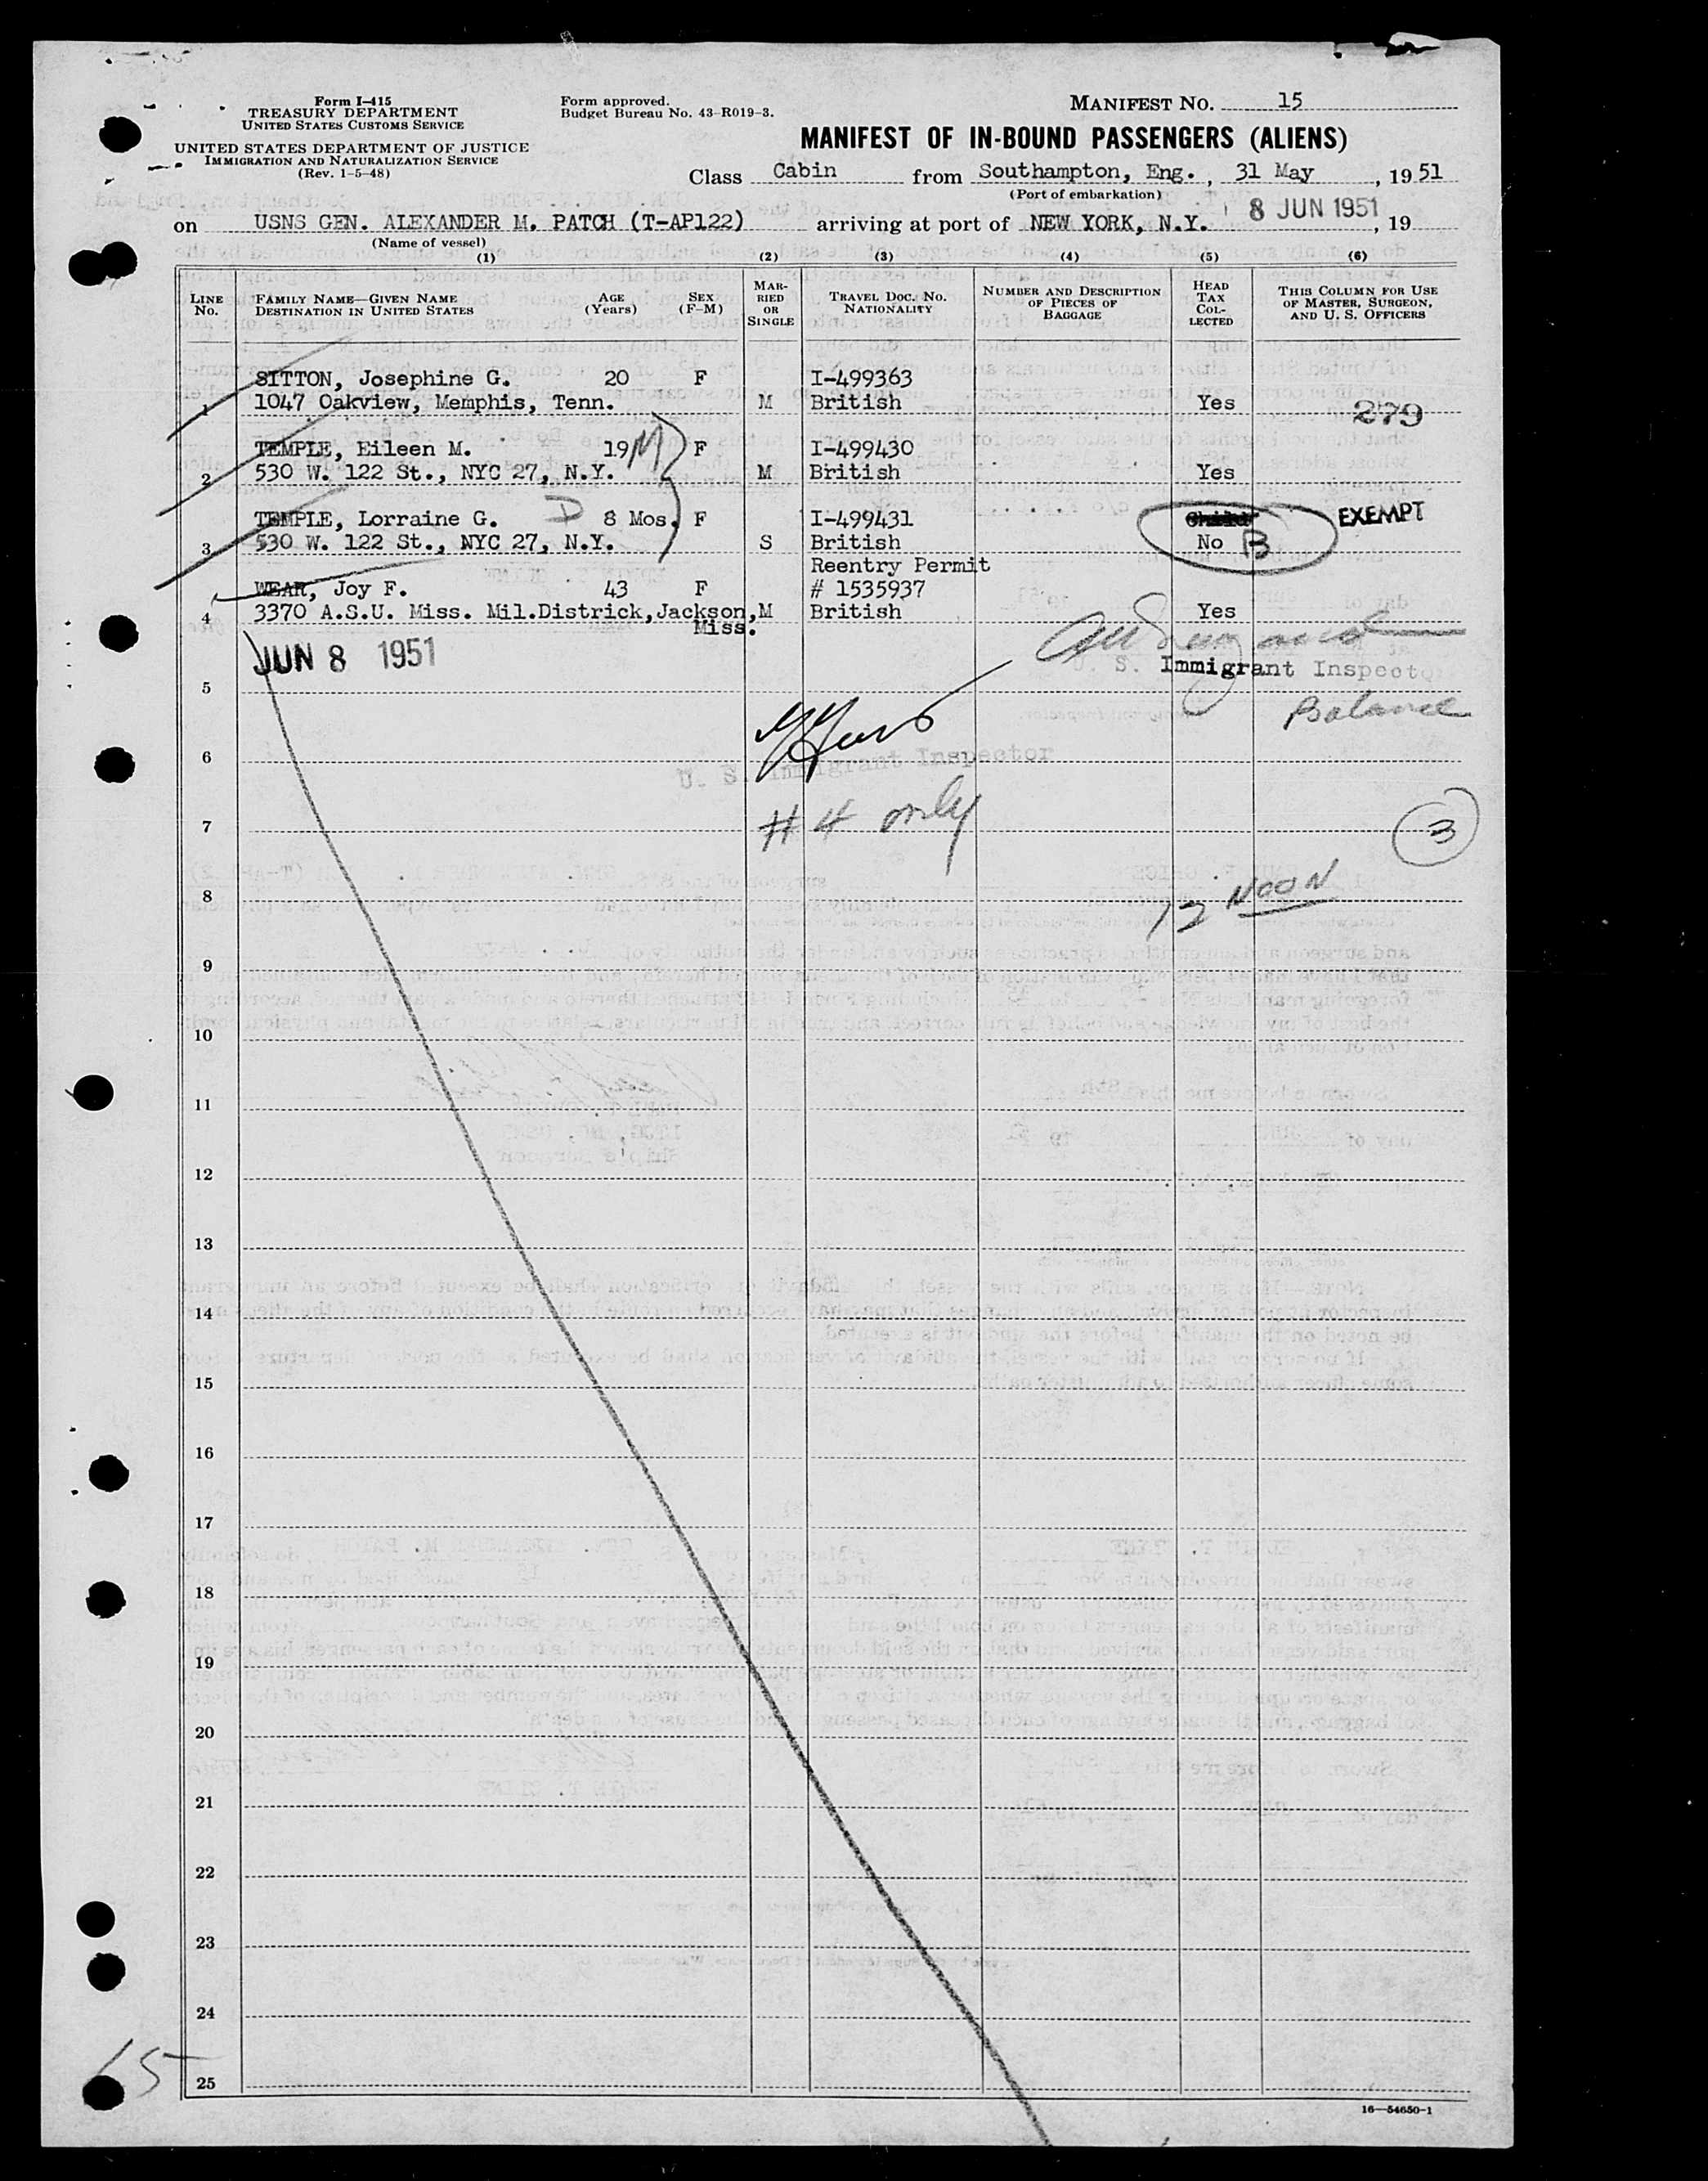 Form I-415
TREASURY DEPARTMENT
UNITED STATES CUSTOMS SERVICE
UNITED STATES DEPARTMENT OF JUSTICE
IMMIGRATION AND NATURALIZATION SERVICE
(Rev. 1-5-48)
Form approved.
Budget Bureau No. 43-R019-3.
MANIFEST NO. 15
MANIFEST OF IN-BOUND PASSENGERS (ALIENS)
Class Cabin from Southampton, Eng., 31 May, 19 51
(Port of embarkation)
on USNS GEN. ALEXANDER M. PATCH (T-AP122) arriving at port of NEW YORK, N.Y. 8 JUN 1951, 19
(Name of vessel)
(1) (2) (3) (4) (5) (6)
LINE No. FAMILY NAME—GIVEN NAME DESTINATION IN UNITED STATES AGE (Years) SEX (F-M) MARRIED OR SINGLE TRAVEL DOC. NO. NATIONALITY NUMBER AND DESCRIPTION OF PIECES OF BAGGAGE HEAD TAX COLLECTED THIS COLUMN FOR USE OF MASTER, SURGEON, AND U. S. OFFICERS
SITTON, Josephine G. 20 F I-499363
1 1047 Oakview, Memphis, Tenn. M British Yes 279
TEMPLE, Eileen M. 19 M F I-499430
2 530 W. 122 St., NYC 27, N.Y. M British Yes
TEMPLE, Lorraine G. D 8 Mos. F I-499431 Child EXEMPT
3 530 W. 122 St., NYC 27, N.Y. S British No B
Reentry Permit
WEAR, Joy F. 43 F # 1535937
4 3370 A.S.U. Miss. Mil.Districk,Jackson, M British Yes
Miss.
JUN 8 1951
U. S. Immigrant Inspector
5
Balance
6
U. S. Immigrant Inspector
7 # 4 only
3
8 12 NOON
9
10
11
12
13
14
15
16
17
18
19
20
21
22
23
24
25
16—54650-1